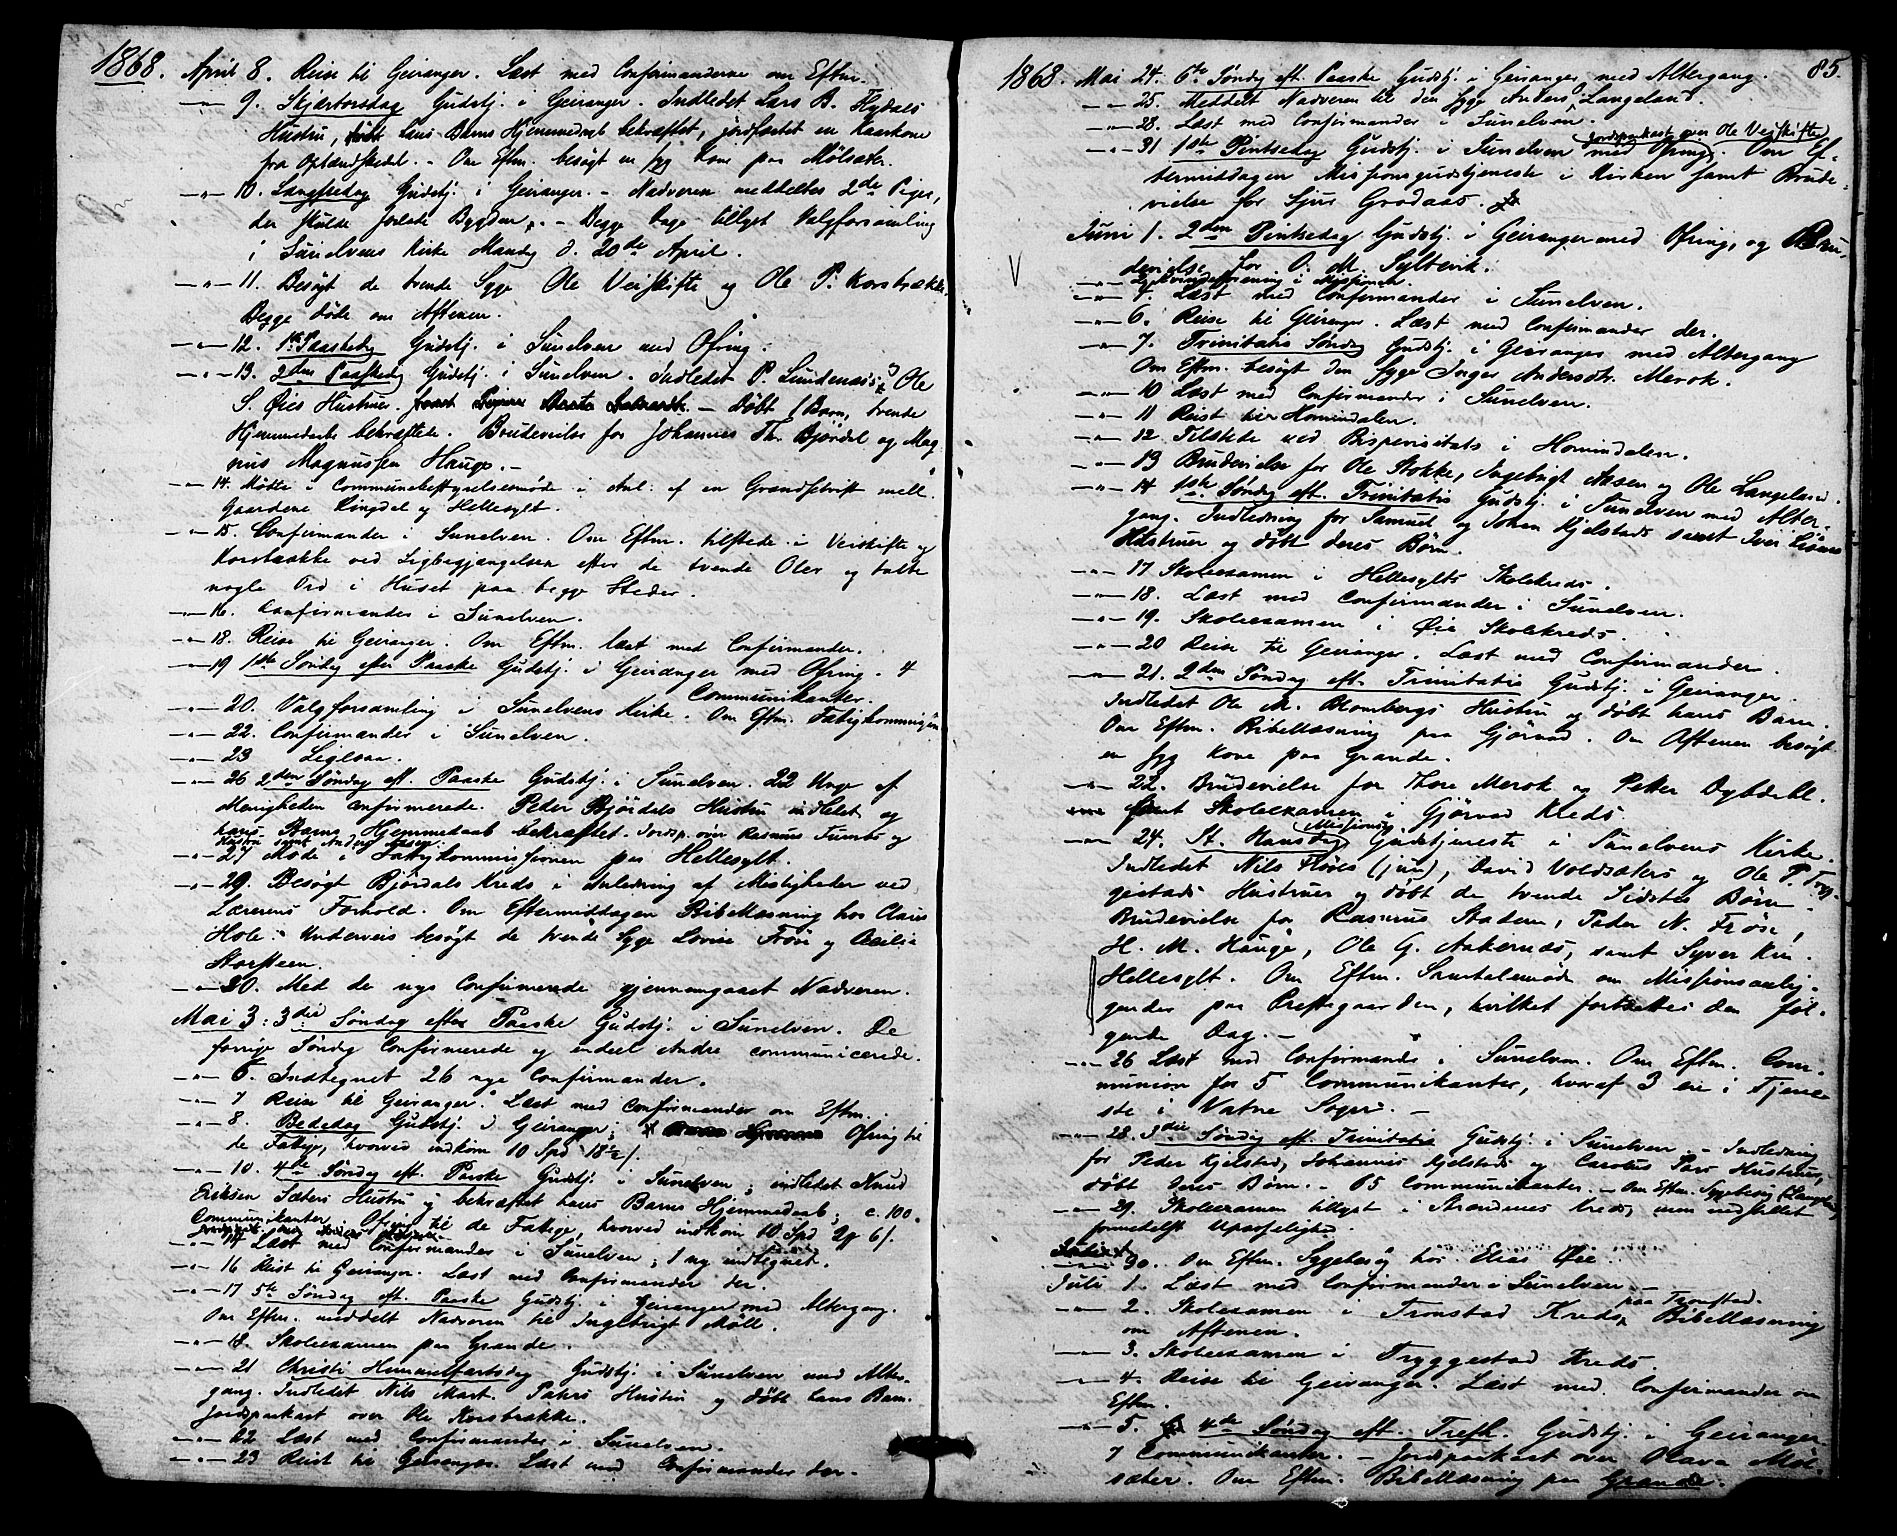 1868. April 8. Reise til Geiranger. Læst med Confirmanderne om Eftm.
—"— 9. Skjærtorsdag Gudstj. i Geiranger. Indledet Lars B. Flydals
Hustru, hans Barns Hjemmedaab bekræftet, jordfæstet en Kaarkone
fra Oplændskedal. - Om Eftm. besøgt en syg Kone paa Mølsæter.
—"— 10. Langfredag Gudstj. i Geiranger. - Nadveren meddeeltes 2de Piger,
der skulde forlade Bygden. - Begge Dage tillyst Valgforsamling
i Sunelvens Kirke Mandag d. 20de April.
—"— 11. Besøgt de tvende Syge Ole Veiskifte og Ole P. Korsbrække.
Begge døde om Aftenen.
—"— 12. 1ste Paaskedag Gudstj. i Sunelven med Ofring.
—"— 13. 2den Paaskedag Gudstj. i Sunelven. Indledet P. Lundenæs's og Ole
S. Øies Hustruer. - Døbt 1 Barn, tvende
Hjemmedaab bekræftede. Brudevielse for Johannes Th. Bjørdal og Mag
nus Magnussen Hauge. -
—"— 14. Møde i Communebestyrelsesmøde i Anl. af en Grandskrift mell.
Gaardene Ringdal og Hellesylt.
—"— 15. Confirmander i Sunelven. Om Eftm. tilstede i Veiskifte og
Korsbrække ved Ligbegjængelsen efter de tvende Oler og talte
nogle Ord i Huset paa begge Steder.
—"— 16. Confirmander i Sunelven.
—"— 18. Reise til Geiranger. Om Eftm. læst med Confirmander.
—"— 19 1ste Søndag efter Paaske Gudstj. i Geiranger med Ofring. 4
Communikanter.
—"— 20. Valgforsamling i Sunelvens Kirke. Om Eftm. Fattigkommission
—"— 22. Confirmander i Sunelven.
—"— 23
—"— 26 2den Søndag eft. Paaske Gudstj. i Sunelven. 22 Unge af
Menigheden confirmerede. Peder Bjørdals Hustru indledet og
hans Barns Hjemmedaab bekræftet. Jordsp. over Rasmus Tumbs og
Hustru samt
—"— 27 Møde i Fattigkommissionen paa Hellesylt.
—"— 29. Besøgt Bjørdals Kreds i Anledning af Misligheder ved
Lærerens Forhold. Om Eftermiddagen Bibellæsning hos Claus
Hole. - Underveis besøgt de tvende Syge Lovise Frøi og Cecilie
Storsteen.
—"— 30. Med de nys Confirmerede gjennemgaaet Nadveren.
Mai 3: 3die Søndag efter Paaske Gudstj. i Sunelven. De
forrige Søndag Confirmerede og endeel Andre communicerede.
—"— 6. Indtegnet 26 nye Confirmander.
—"— 7 Reise til Geiranger. Læst med Confirmander om Eftm.
—"— 8. Bededag Gudstj. i Geiranger; Ofring til
de Fattige, hvorved indkom 10 Spd 18½ /.
—"— 10. 4de Søndag eft. Paaske Gudstj. i Sunelven; indledet Knud
Eriksen Sæters Hustru og bekræftet hans Barns Hjemmedaab; c. 100.
Communikanter. Ofring til de Fattige, hvorved indkom 10 Spd 2 6/.
—"— 14 Læst med Confirmander i Sunelven; 1 ny indtegnet.
—"— 16 Reist til Geiranger. Læst med Confirmander der.
—"— 17 5te Søndag eft. Paaske Gudstj. i Geiranger med Altergang.
Om Eftm. meddelt Nadveren til Ingebrigt Møll.
—"— 18. Skoleexamen paa Grande.
—"— 21 Christi Himmelfartsdag Gudstj. i Sunelven med Alter-
gang. Indledet Nils Mart. Hustru og døbt hans Barn.
Jordpaakast over Ole Korsbrække.
—"— 22 Læst med Confirmander i Sunelven.
—"— 23 Reist til Geiranger. Læst med Confirmander der.
85.
1868 Mai 24. 6te Søndg eft. Paaske Gudstj. i Geiranger med Altergang.
—"— 25. Meddelt Nadveren til den syge Anders Langeland.
—"— 28. Læst med Confirmander i Sunelven.
Jordpaakast over Ole Veiskifte
—"— 31 1ste Pintsedag Gudstj. i Sunelven med Ofring. Om Ef-
termiddagen Missionsgudstjeneste i Kirken samt Brude-
vielse for Sjur Grodaas.
Juni 1. 2den Pintsedag Gudstj. i Geiranger med Ofring, og Bru-
devielse for O. M. Syltevik.
Qvindeforening i Missionen
—"— 4. Læst med Confirmander i Sunelven.
—"— 6. Reise til Geiranger. Læst med Confirmander der.
—"— 7. Trinitatis Søndag Gudstj. i Geiranger med Altergang
Om Eftm. besøgt den syge Inger Andersdtr. Merok.
—"— 10 Læst med Confirmander i Sunelven.
—"— 11 Reist til Hornindalen.
—"— 12. Tilstede ved Bispevisitats i Hornindalen.
—"— 13 Brudevielse for Ole Stokke, Ingebrigt Aksen og Ole Langeland.
—"— 14 1ste Søndg eft. Trinitatis Gudstj. i Sunelven med Alter-
gang. Indledning for Samuel og Johan Kjelstads samt Iver
Hustruer og døbt deres Børn.
—"— 17 Skoleexamen i Hellesylts Skolekreds.
—"— 18. Læst med Confirmander i Sunelven.
—"— 19. Skoleexamen i Øie Skolekreds.
—"— 20 Reise til Geiranger. Læst med Confirmander.
—"— 21. 2den Søndag eft. Trinitatis Gudstj. i Geiranger.
Indledet Ole M. Blombergs Hustru og døbt hans Barn.
Om Eftm. Bibellæsning paa Gjørvad. Om Aftenen besøgt
en syg Kone paa Grande.
—"— 22. Brudevielse for Thore Merok og Petter Dybdahl.
samt Skoleexamen i Gjørvad Kreds.
Missions
—"— 24. St. Hansdag Gudstjeneste i Sunelvens Kirke.
Indledet Nils Frøies (jun), David Voldsæters og Ole P. Tryg-
gestads Hustruer og døbt de tvende Sidstes Børn.
Brudevielse for Rasmus Staden, Peder N. Frøie,
H. M. Hauge, Ole G. Aakernæs, samt Syver Kn.
Hellesylt. Om Eftm. Samtalemøde om Missionsanlig-
gender paa Prestegaarden, hvilket fortsattes den føl-
gende Dag. -
—"— 26 Læst med Confirmander i Sunelven. Om Eftm. Com-
munion for 5 Communikanter, hvoraf 3 ere i Tjene-
ste i Vatne Sogn. -
—"— 28. 3die Søndag eft. Trinitatis Gudstj. i Sunelven - Indledning
for Peder Kjelstad, Johannes Kjelstads og Carolus Hustruer,
døbt deres Børn. - 85 Communikanter. - Om Eftm. Sygebesøg
—"— 29. Skoleexamen tillyst i Strandenes Kreds, men indstillet
formedelst Upasselighed.
—"— 30. Om Eftm. Sygebesøg hos Elias Øie.
Juli 1. Læst med Confirmander i Sunelven -
paa Tronstad.
—"— 2. Skoleexamen i Tronstad Kreds, Bibellæsning
om Aftenen.
—"— 3. Skoleexamen i Tryggestad Kreds.
—"— 4. Reise til Geiranger. Læst med Confirmander om
Eftm.
—"— 5. 4de Søndag eft. Trefh. Gudstj. i Geiranger
7 Communikanter. - Jordpaakast over Olava Møl-
sæter. Om Eftm. Bibellæsning paa Grande.